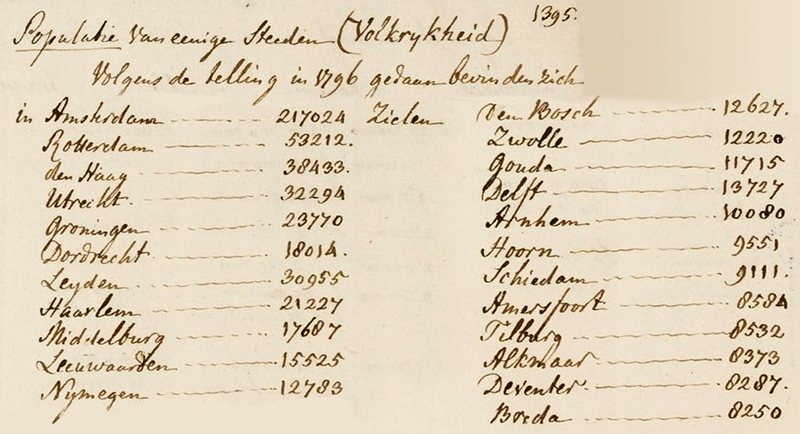 1395.
Populatie van eenige Steeden (Volkrykheid)
Volgens de telling in 1796 gedaan bevinden zich
in Amsterdam 217024 Zielen
Rotterdam 53212.
den Haag 38433.
Utrecht 32294
Groningen 23770
Dordrecht 18014.
Leyden 30955
Haarlem 21227
Middelburg 17687
Leeuwaarden 15525
Nymegen 12783
Den Bosch 12627.
Zwolle 12220
Gouda 11715
Delft 13727
Arnhem 10080
Hoorn 9551
Schiedam 9111.
Amersfoort 8584
Tilburg 8532
Alkmaar 8373
Deventer 8287.
Breda 8250